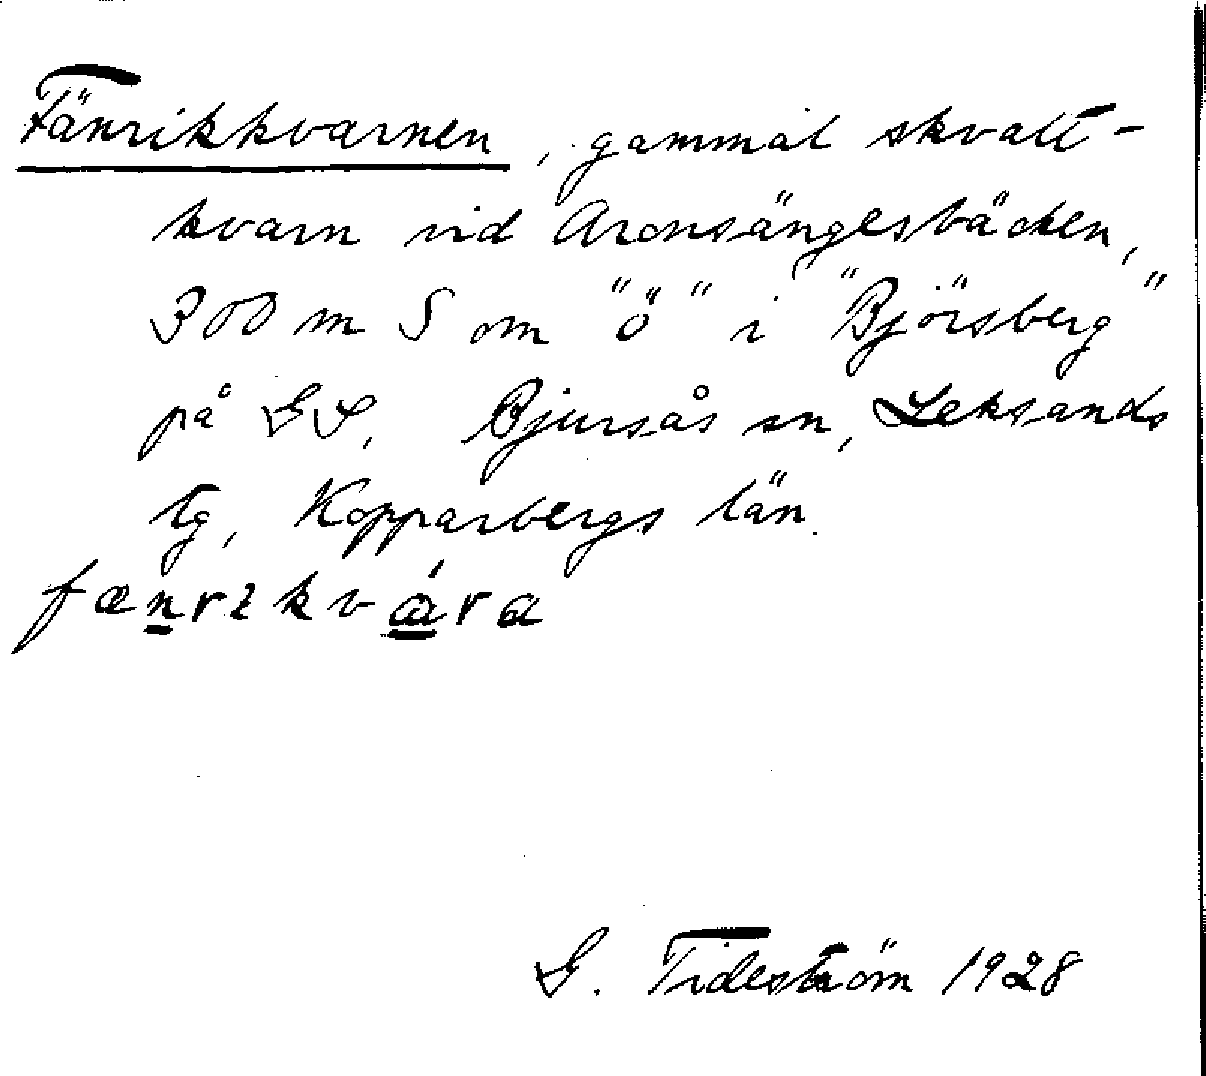 Fänrikkvarnen, gammal skvalt-
kvarn vid Aronsängesbäcken,
300 m S om "ö" i "Björsberg"
på GS, Bjursås sn, Leksands
tg, Kopparbergs län.
fænrɪkvàra
G. Tideström 1928